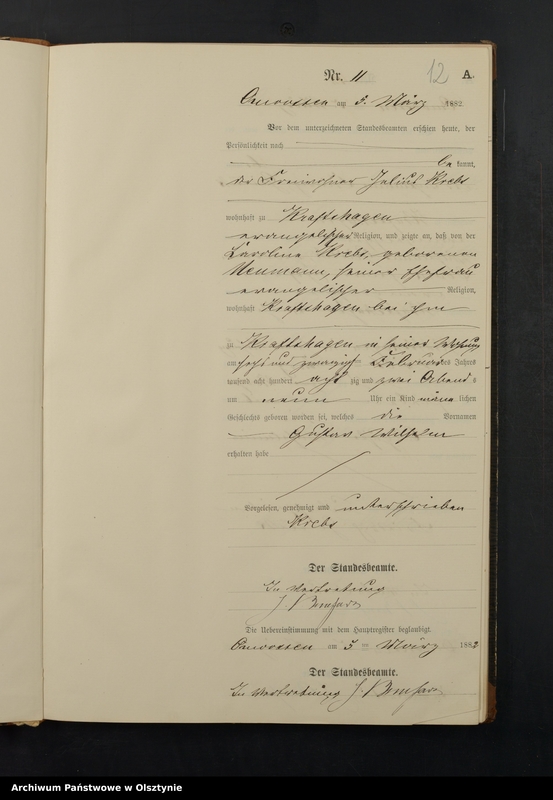 Nr. 11
12
A.
am 3. März 1882.
Vor dem unterzeichneten Standesbeamten erschien heute, der
Persönlichkeit nach
be kannt,
der Julius Krebs
wohnhaft zu Kraftshagen
evangelischer Religion, und zeigte an, daß von der
Caroline Krebs, geborenen
Neumann, seiner Ehefrau
evangelischer Religion,
wohnhaft Kraftshagen bei ihm
zu Kraftshagen in seiner Wohnung
am sechs und zwanzigsten Februar des Jahres
tausend acht hundert acht zig und zwei Abends
um neun Uhr ein Kind männ lichen
Geschlechts geboren worden sei, welches die Vornamen
Gustav Wilhelm
erhalten habe
Vorgelesen, genehmigt und unterschrieben
Krebs
Der Standesbeamte.
In Vertretung
Die Uebereinstimmung mit dem Hauptregister beglaubigt.
am 3 ten März 1882
Der Standesbeamte.
In Vertretung
Archiwum Państwowe w Olsztynie